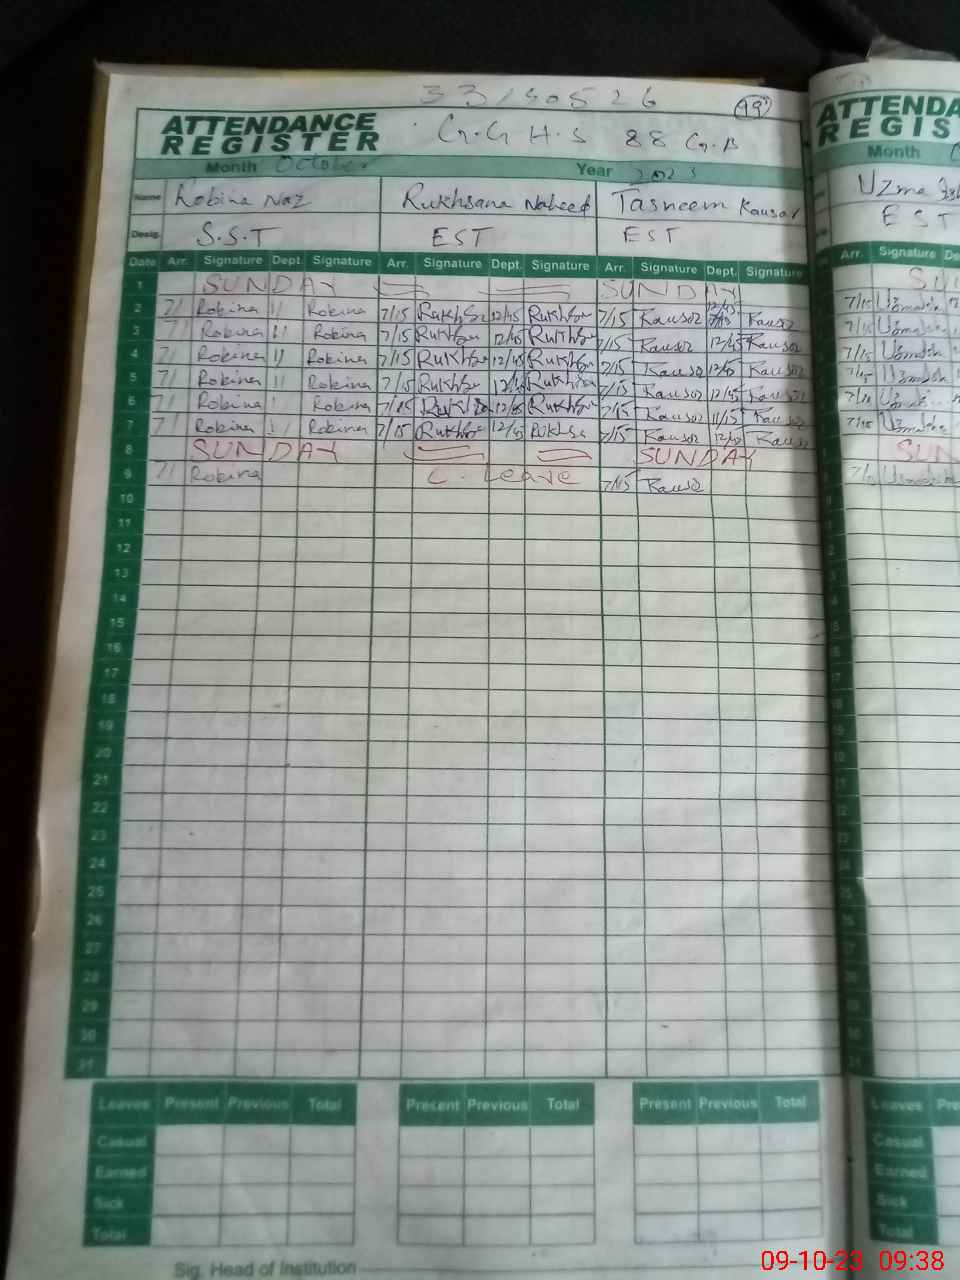 33130526 99
ATTENDANCE REGISTER G.G H.S 88 G.B
Month October Year 2023
Name Robina Naz Rukhsana Naheed Tasneem Kausar
Desig. S.S.T EST EST
Date Arr. Signature Dept. Signature Arr. Signature Dept. Signature Arr. Signature Dept. Signature
1 SUNDAY SUNDAY
2 7/ Robina 11 Robina 7/15 Rukhsa 12/45 Rukhsa 7/15 Kausar 12/45 Kausar
3 7/ Robina 11 Robina 7/15 Rukhsa 12/45 Rukhsa 7/15 Kausar 12/45 Kausar
4 7/ Robina 11 Robina 7/15 Rukhsa 12/45 Rukhsa 7/15 Kausar 12/45 Kausar
5 7/ Robina 11 Robina 7/15 Rukhsa Rukhsa 7/15 Kausar 12/45 Kausar
6 7/ Robina Robina 7/15 Rukhsa Rukhsa 7/15 Kausar 11/15 Kausar
7 7/ Robina Robina 7/15 Rukhsa 12/45 Rukhsa 7/15 Kausar 12/45 Kausar
8 SUNDAY SUNDAY
9 7/ Robina C. Leave 7/15 Kausar
10
11
12
13
14
15
16
17
18
19
20
21
22
23
24
25
26
27
28
29
30
31
Leaves Present Previous Total Present Previous Total Present Previous Total
Casual
Earned
Sick
Total
Sig. Head of Institution
ATTENDA
REGIS
Month
Uzma
EST
Arr. Signature De
7/15
7/15
7/15
7/15
7/15
Leaves Pre
Casual
Earned
Sick
Total
09-10-23 09:38